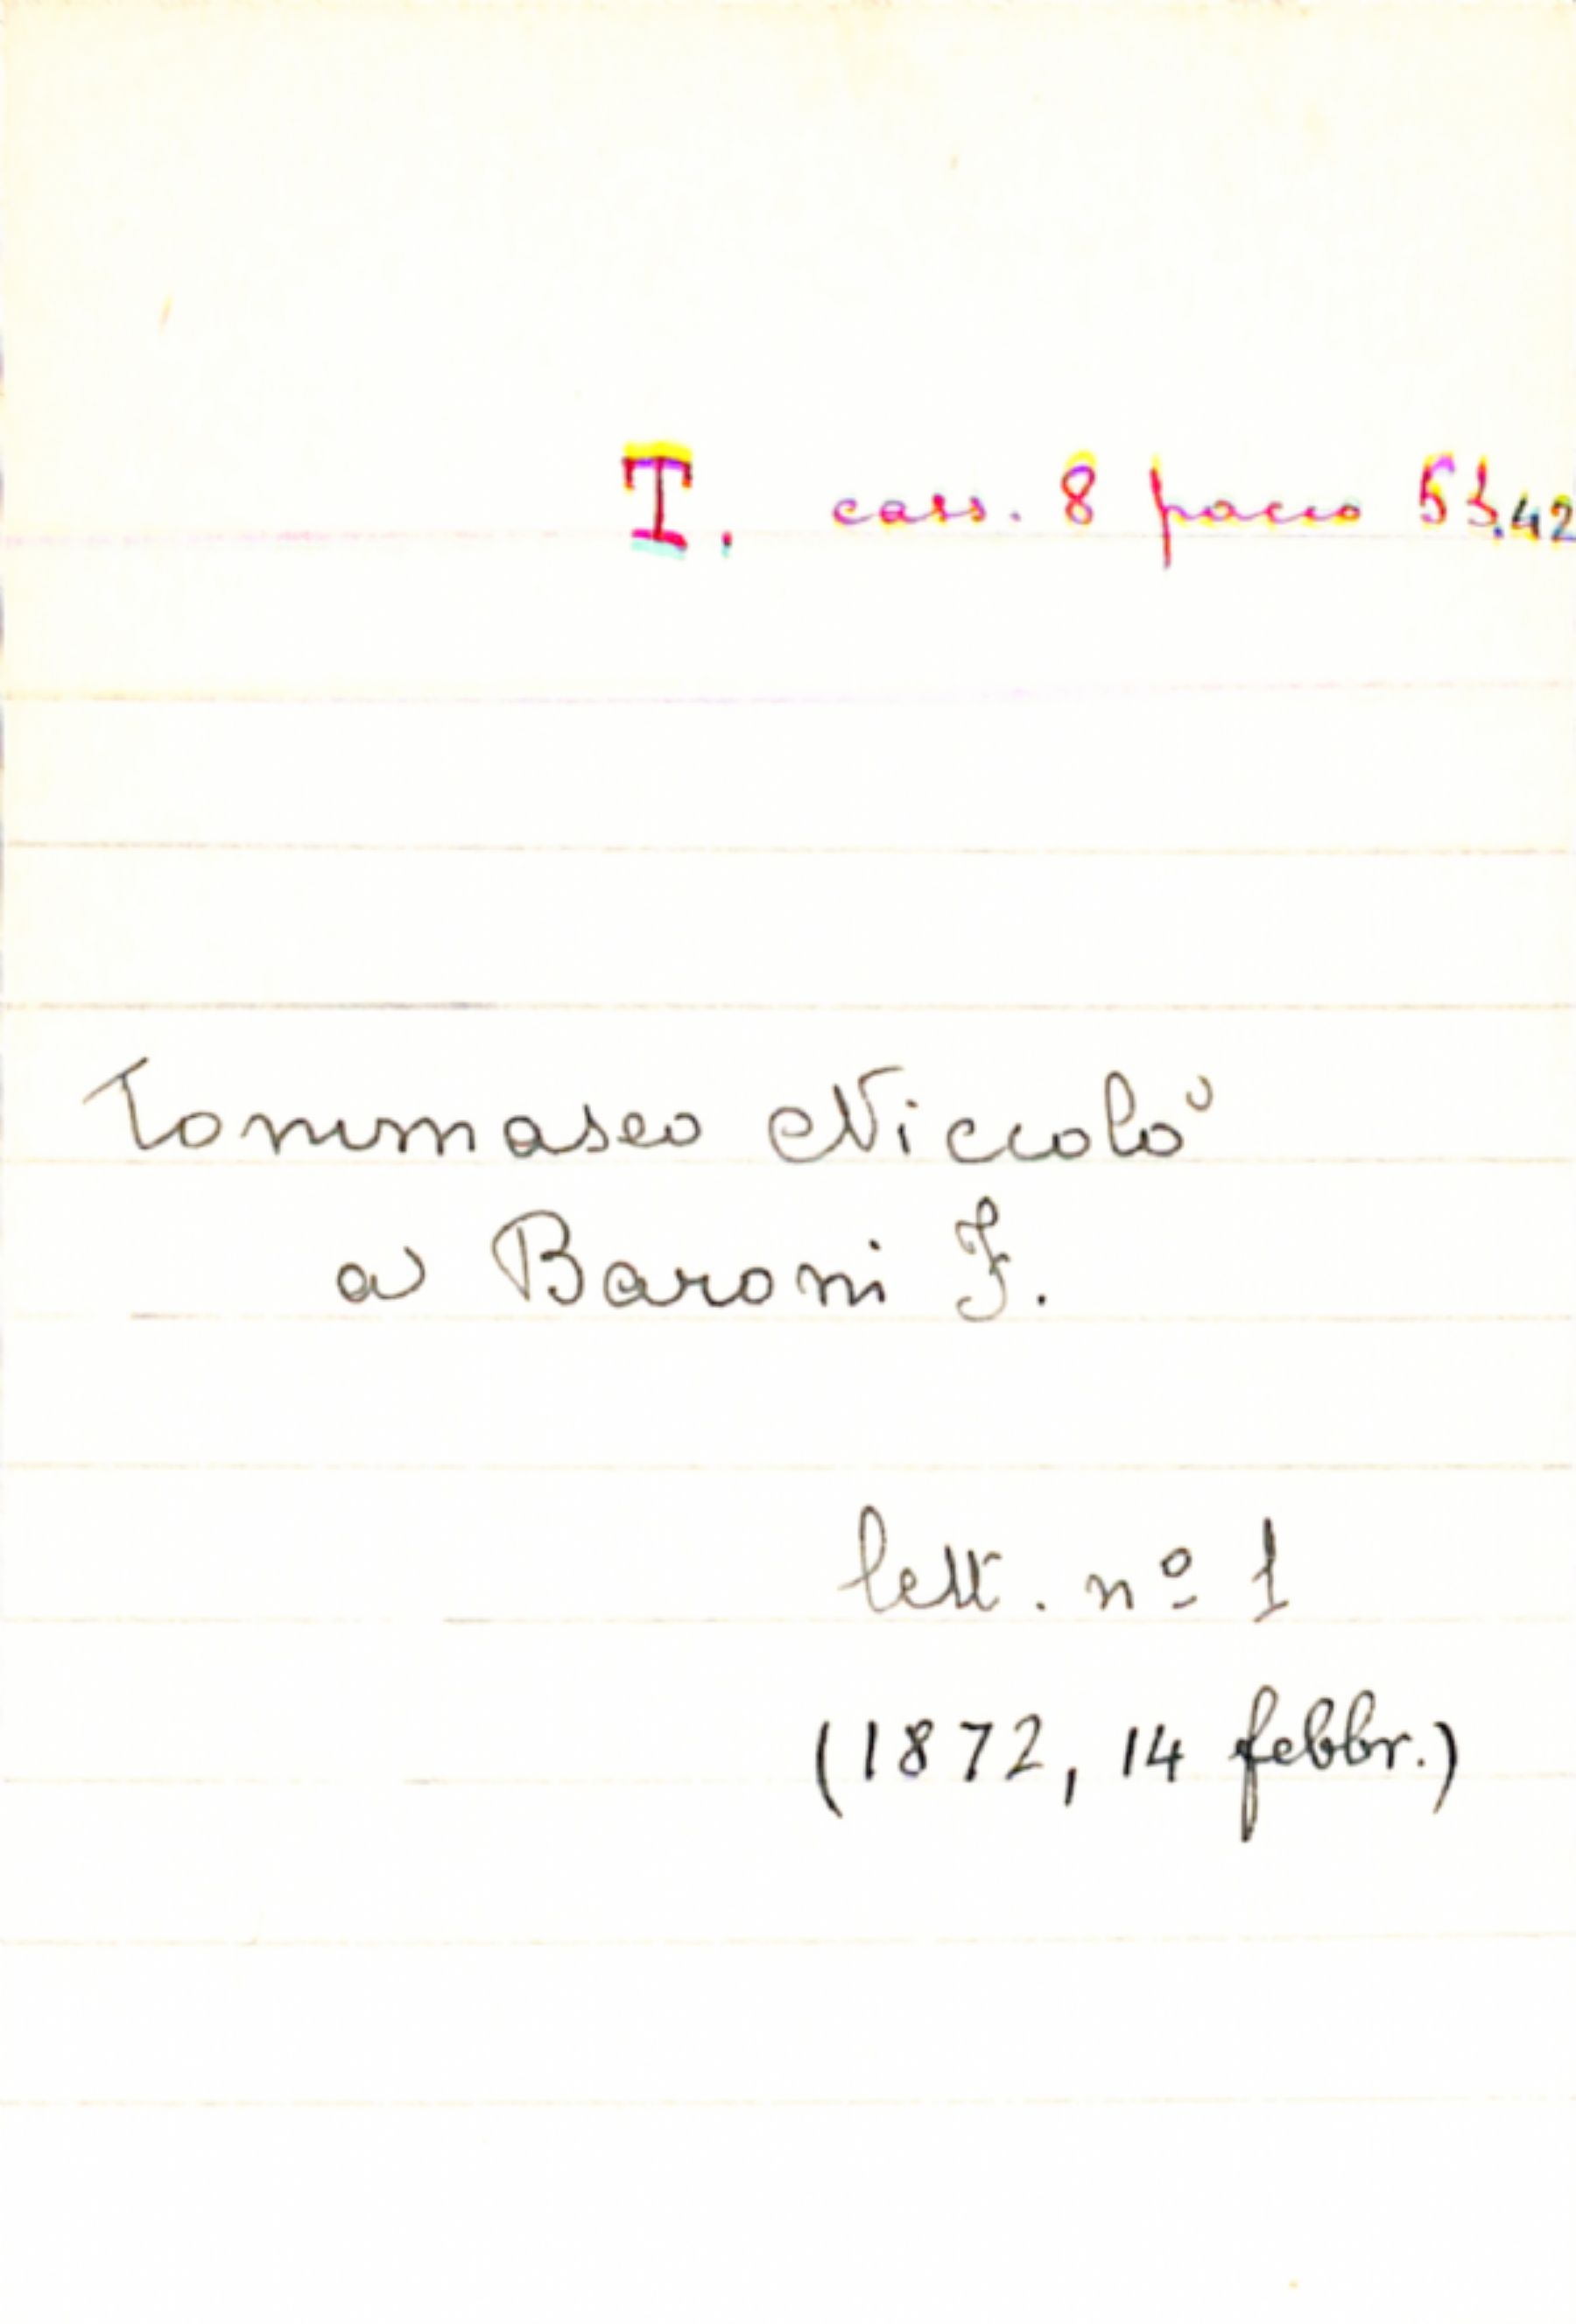 T. cass. 8 pacco 53.42
Tommaseo Niccolò
a Baroni F.
lett. nº 1
(1872, 14 febbr.)